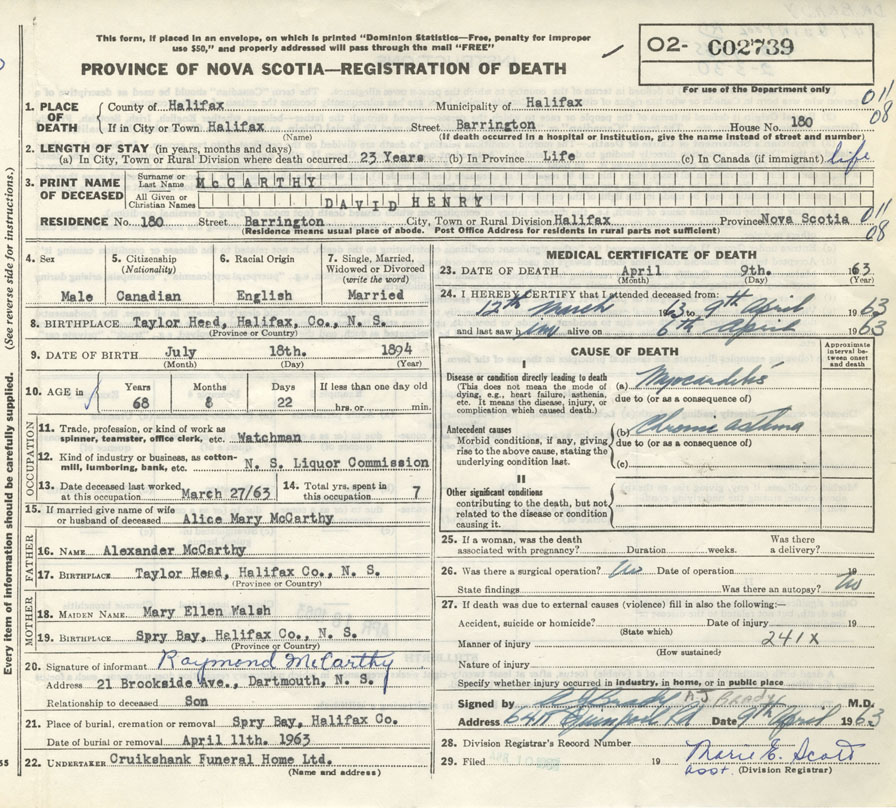 This form, if placed in an envelope, on which is printed "Dominion Statistics—Free, penalty for improper
use $50," and properly addressed will pass through the mail "FREE"
O2- C02739
PROVINCE OF NOVA SCOTIA—REGISTRATION OF DEATH
For use of the Department only
1. PLACE OF DEATH { County of Halifax Municipality of Halifax 011
If in City or Town Halifax Street Barrington House No. 180 08
(Name) (If death occurred in a hospital or institution, give the name instead of street and number)
2. LENGTH OF STAY (in years, months and days)
(a) In City, Town or Rural Division where death occurred 23 Years (b) In Province Life (c) In Canada (if immigrant) life
3. PRINT NAME OF DECEASED { Surname or Last Name McCARTHY
All Given or Christian Names DAVID HENRY
RESIDENCE No. 180 Street Barrington City, Town or Rural Division Halifax Province Nova Scotia 011
(Residence means usual place of abode. Post Office Address for residents in rural parts not sufficient) 08
4. Sex Male
5. Citizenship (Nationality) Canadian
6. Racial Origin English
7. Single, Married, Widowed or Divorced (write the word) Married
8. BIRTHPLACE Taylor Head, Halifax, Co., N. S.
(Province or Country)
9. DATE OF BIRTH July 18th. 1894
(Month) (Day) (Year)
10. AGE in Years 68 Months 8 Days 22 If less than one day old hrs. or min.
OCCUPATION
11. Trade, profession, or kind of work as spinner, teamster, office clerk, etc. Watchman
12. Kind of industry or business, as cotton-mill, lumbering, bank, etc. N. S. Liquor Commission
13. Date deceased last worked at this occupation March 27/63 14. Total yrs. spent in this occupation 7
15. If married give name of wife or husband of deceased Alice Mary McCarthy
FATHER
16. NAME Alexander McCarthy
17. BIRTHPLACE Taylor Head, Halifax Co., N. S.
(Province or Country)
MOTHER
18. MAIDEN NAME Mary Ellen Walsh
19. BIRTHPLACE Spry Bay, Halifax Co., N. S.
(Province or Country)
20. Signature of informant Raymond McCarthy
Address 21 Brookside Ave., Dartmouth, N. S.
Relationship to deceased Son
21. Place of burial, cremation or removal Spry Bay, Halifax Co.
Date of burial or removal April 11th. 1963
22. UNDERTAKER Cruikshank Funeral Home Ltd.
(Name and address)
MEDICAL CERTIFICATE OF DEATH
23. DATE OF DEATH April 9th. 1963
(Month) (Day) (Year)
24. I HEREBY CERTIFY that I attended deceased from:
12th March 1963 to 9th April 1963
and last saw him alive on 6th April 1963
CAUSE OF DEATH
Approximate interval between onset and death
I
Disease or condition directly leading to death (a) Myocarditis
(This does not mean the mode of dying, e.g., heart failure, asthenia, etc. It means the disease, injury, or complication which caused death.)
due to (or as a consequence of)
Antecedent causes (b) Chronic asthma
Morbid conditions, if any, giving rise to the above cause, stating the underlying condition last.
due to (or as a consequence of)
(c)
II
Other significant conditions
contributing to the death, but not related to the disease or condition causing it.
25. If a woman, was the death associated with pregnancy? Duration weeks. Was there a delivery?
26. Was there a surgical operation? No Date of operation 19
State findings Was there an autopsy? No
27. If death was due to external causes (violence) fill in also the following:—
Accident, suicide or homicide? Date of injury 19
(State which)
Manner of injury 241X
(How sustained)
Nature of injury
Specify whether injury occurred in industry, in home, or in public place
Signed by AJ Brady M.D.
Address Date 9th April 1963
28. Division Registrar's Record Number
29. Filed 19 Marie E. Scott
asst. (Division Registrar)
Every item of information should be carefully supplied. (See reverse side for instructions.)